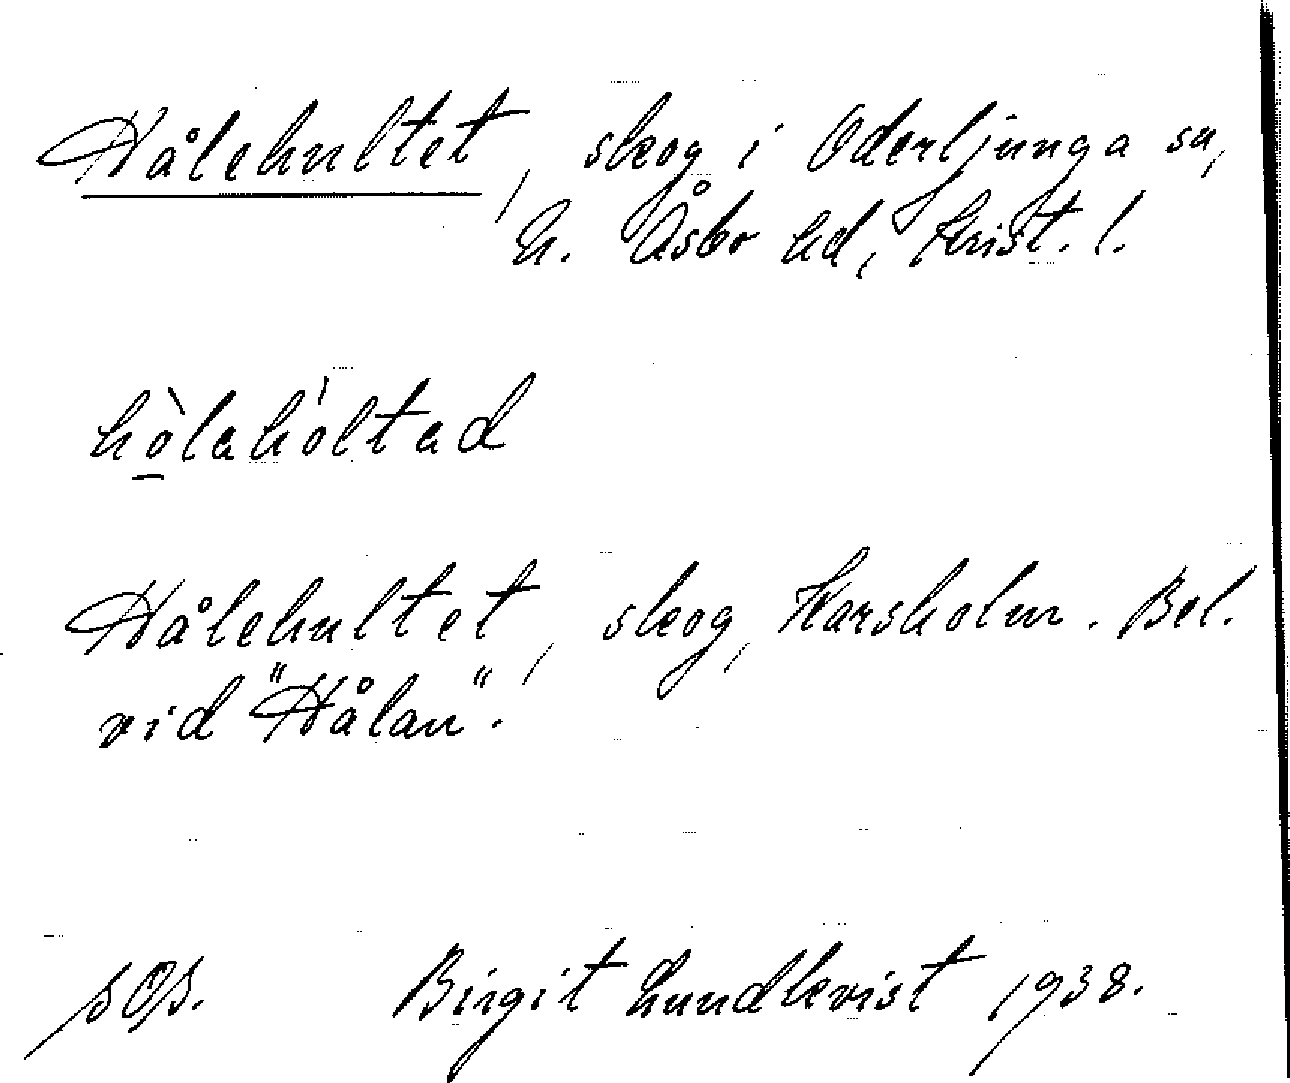 Hålehultet, skog i Oderljunga sn,
N. Åsbo hd, Krist. l.
hòlahóltad
Hålehultet, skog, Karsholm. Bel.
vid "Hålan".
sOs. Birgit Lundkvist 1938.